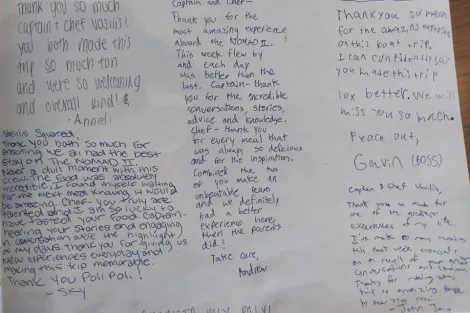 Thank you so much
captain + chef Vasilis!
you both made this
trip so much fun
and were so welcoming
and overall kind!
-Anneli
Vasilis Squared,
Thank you both so much for
ensuring we all had the best
stay on The NOMAD II.
Never a dull moment with this
crew. The food was absolutely
incredible, I found myself waiting
for the next meal knowing it would
be amazing. Chef- you truly are
talented and I am so lucky to
have tasted your food. Captain-
Hearing your stories and engaging
in conversation were the highlight
of my days. Thank you for giving us
new experiences everyday and
making this trip memorable.
Thank you Poli Poli!
- SKY
Captain and Chef-
Thank you for the
most amazing experience
aboard the NOMAD II.
This week flew by
and each day
was better then the
last. Captain- thank
you for the incredible
conversations, stories,
advice and knowledge.
Chef- thank you
for every meal that
was always so delicious
and for the inspiration.
Combined the two
of you make an
unbeatable team
and we definitely
had a better
experience here
then the parents
did!
Take care,
Andrew
Thank you so much
for the amazing experience
on this boat trip.
I can confidently say
you made this trip
10x better. We will
miss you so much.
Peace out,
Gavin (BOSS)
Captain & Chef Vasilis,
Thank you so much for
one of the greatest
experiences of my life.
I've made so many memories
this past week
as a result of our great
conversations and
Thanks for making
trip so amazing
to
- John